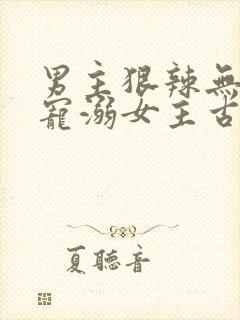 男主狠辣無
寵溺女主古
夏聽音